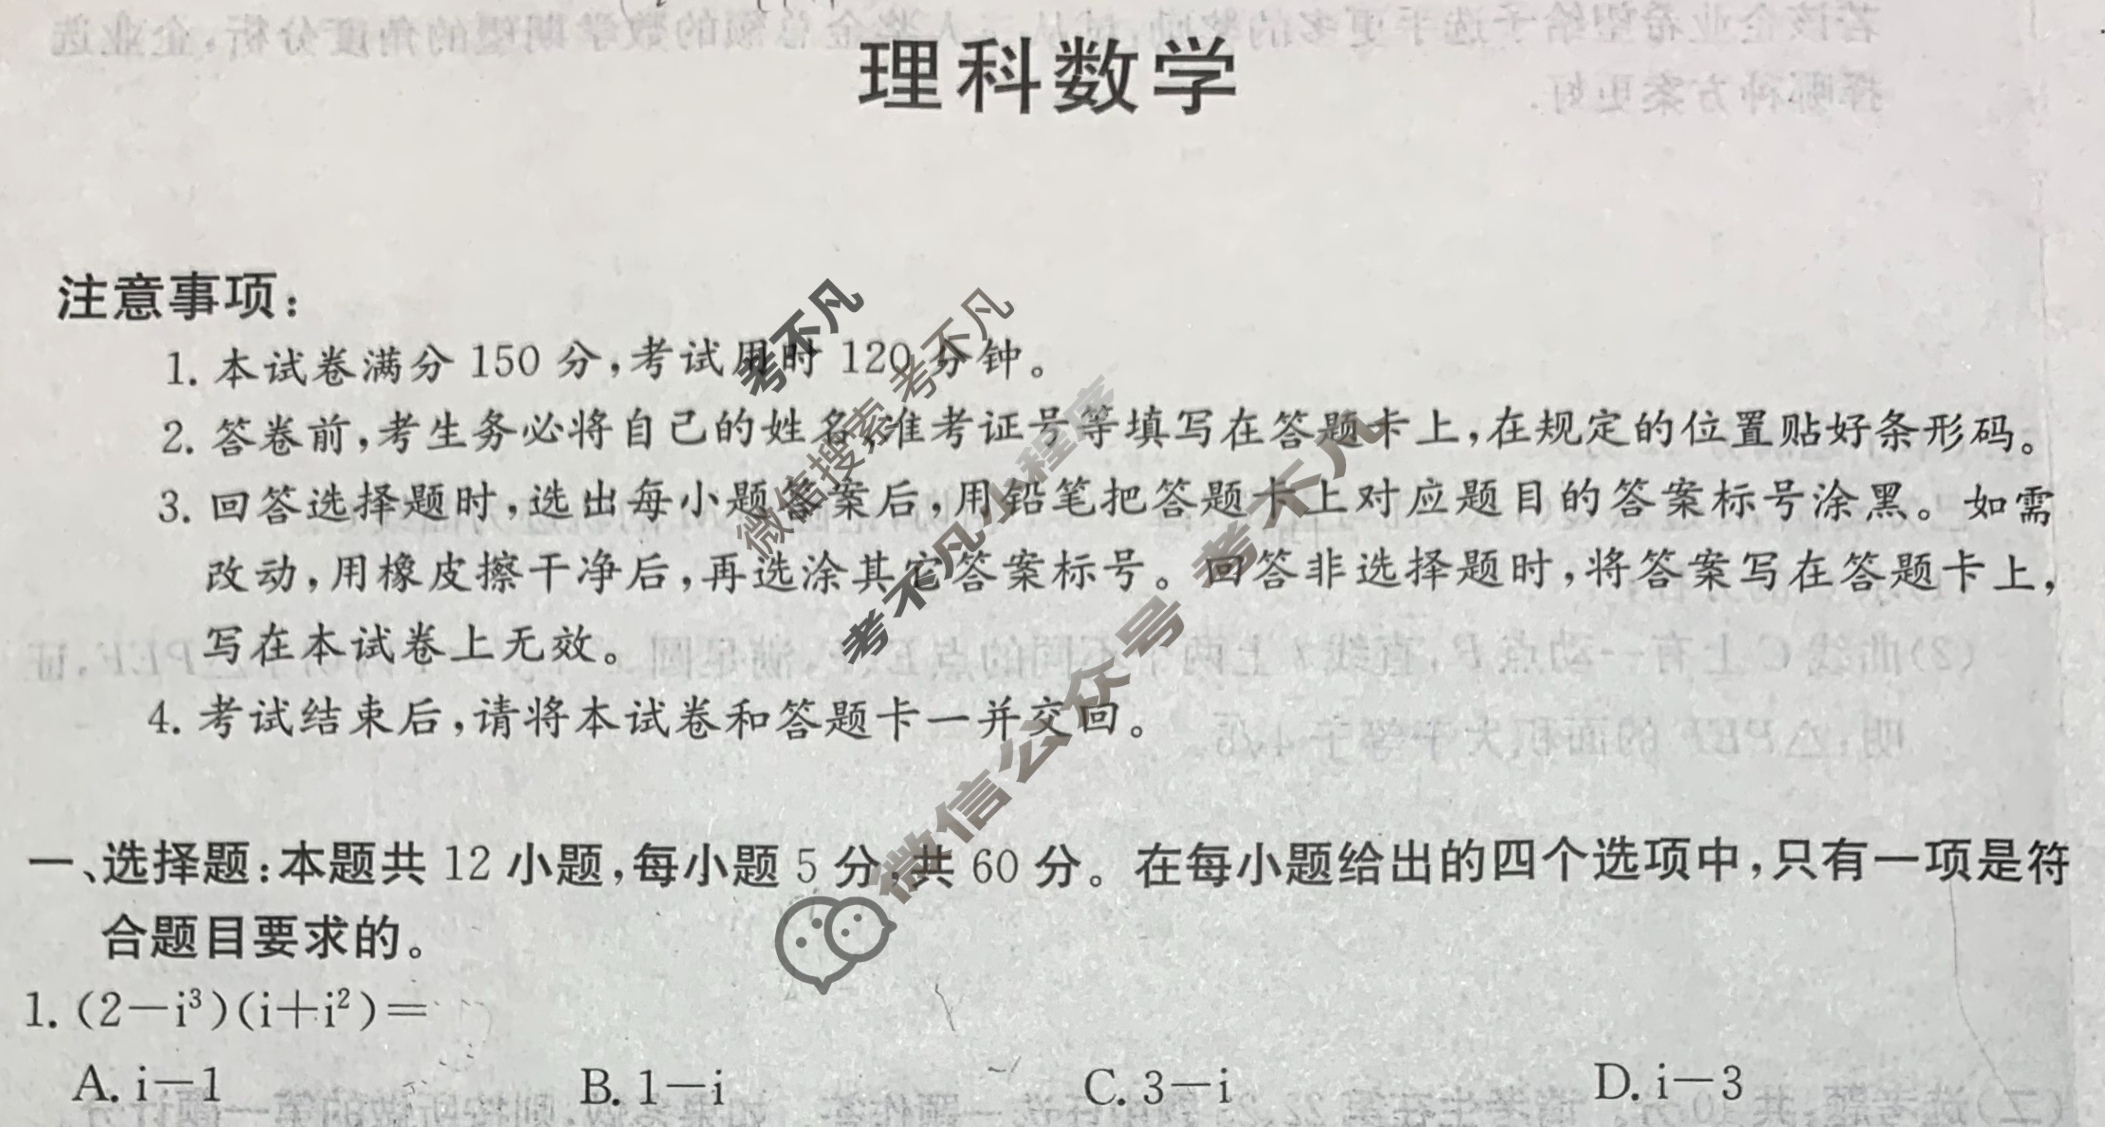 理科数学
注意事项：
1. 本试卷满分 150 分，考试用时 120 分钟。
2. 答卷前，考生务必将自己的姓名、准考证号等填写在答题卡上，在规定的位置贴好条形码。
3. 回答选择题时，选出每小题答案后，用铅笔把答题卡上对应题目的答案标号涂黑。如需
改动，用橡皮擦干净后，再选涂其它答案标号。回答非选择题时，将答案写在答题卡上，
写在本试卷上无效。
4. 考试结束后，请将本试卷和答题卡一并交回。
一、选择题：本题共 12 小题，每小题 5 分，共 60 分。在每小题给出的四个选项中，只有一项是符
合题目要求的。
1. (2－i³)(i＋i²)＝
A. i－1 B. 1－i C. 3－i D. i－3
考不凡
微信搜索 考不凡
考不凡小程序
微信公众号 考不凡